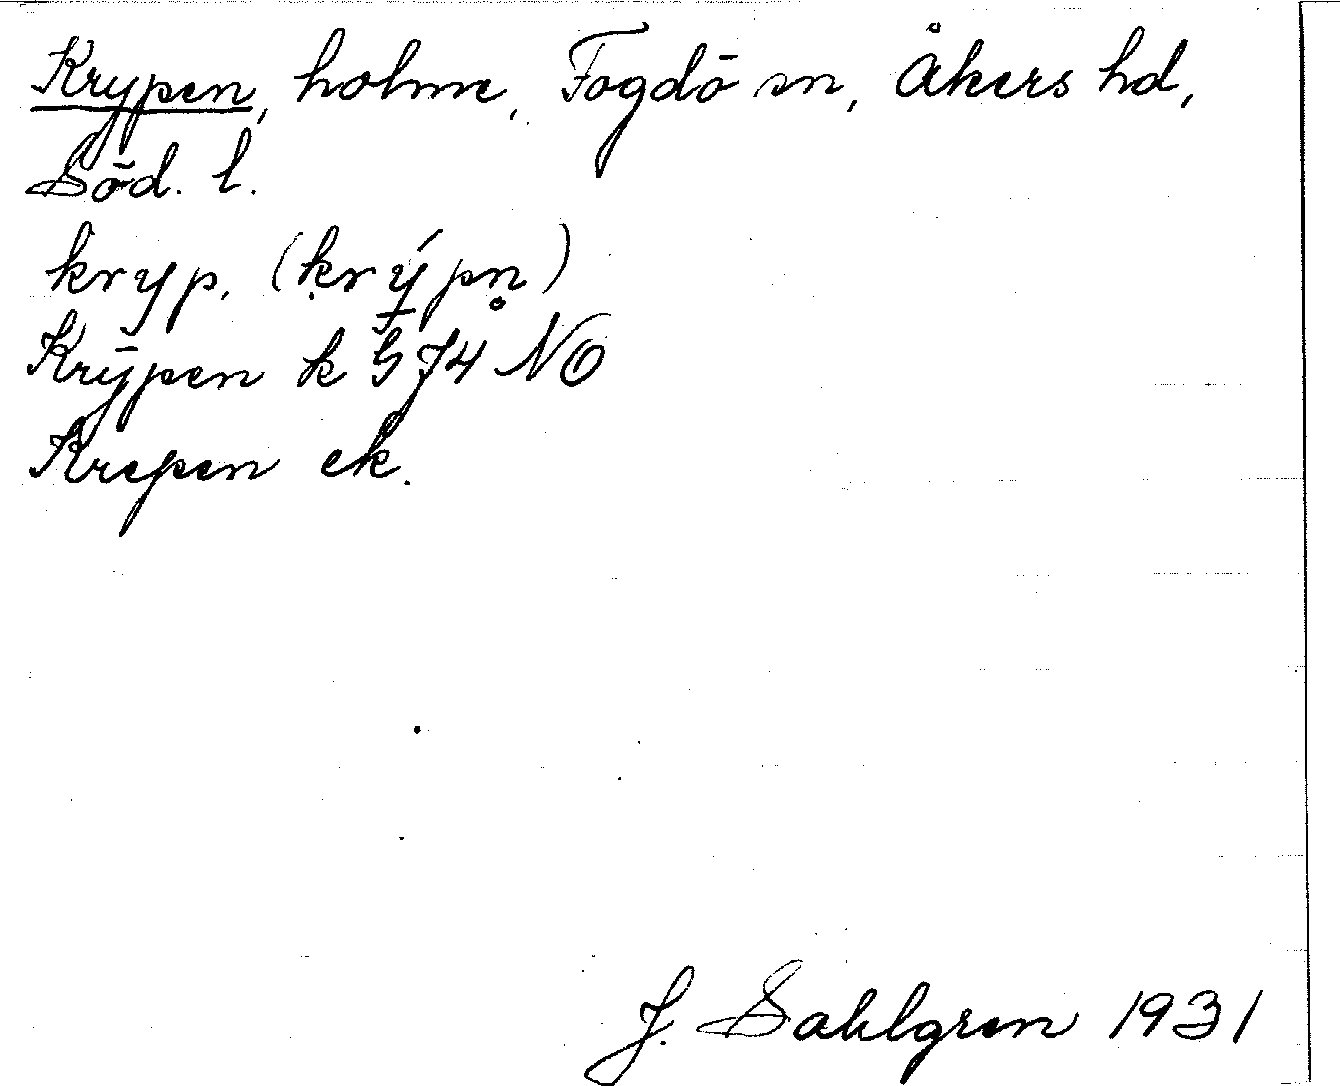 Krypen, holme, Fogdö sn, Åkers hd,
Söd. l.
kryp. (krýpn̥)
Krypen k G 74 NO
Krepen ek.
J. Sahlgren 1931